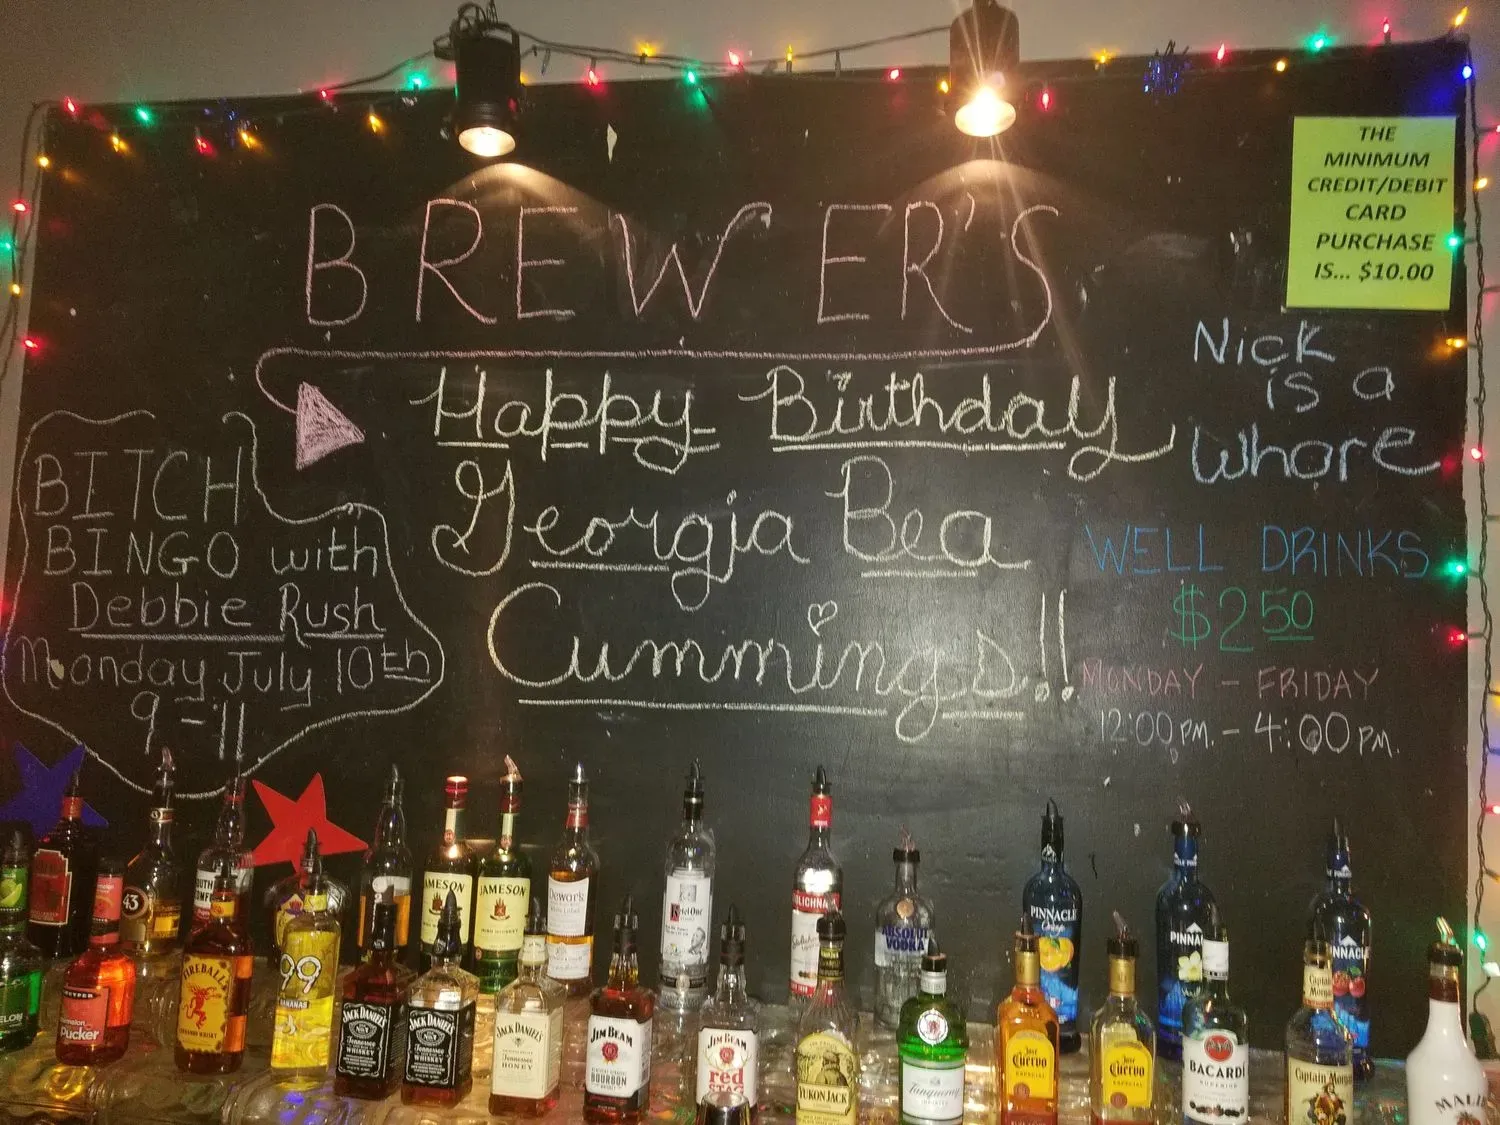 BREWER'S
THE
MINIMUM
CREDIT/DEBIT
CARD
PURCHASE
IS... $10.00
Happy Birthday
Georgia Bea
Cummings!!
Nick
is a
Whore
BITCH
BINGO with
Debbie Rush
Monday July 10th
9-11
WELL DRINKS
$2.50
MONDAY - FRIDAY
12:00 PM. - 4:00 PM.
43
JAMESON
JAMESON
Dewar's
Ketel One
ABSOLUT
VODKA
PINNACLE
Pucker
FIREBALL
99
BANANAS
JACK DANIEL'S
Tennessee
WHISKEY
JACK DANIEL'S
Tennessee
WHISKEY
JACK DANIEL'S
Tennessee
HONEY
JIM BEAM
BOURBON
JIM BEAM
red
STAG
YUKON JACK
Tanqueray
Jose
Cuervo
ESPECIAL
Jose
Cuervo
ESPECIAL
BACARDI
SUPERIOR
Captain Morgan